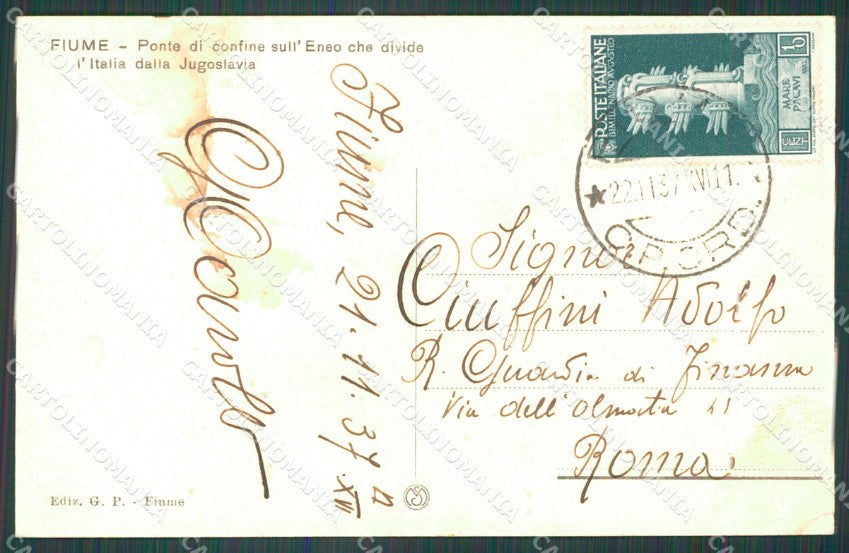 FIUME - Ponte di confine sull'Eneo che divide
l'Italia dalla Jugoslavia
Fiume, 21.11.37
XVI
POSTE ITALIANE
MARE
PACAVI
10
22.11.37 XVI 11.
O.P. ORD.
Signor
Ciuffini Adolfo
R. Guardia di Finanza
Via dell'Olmata
Roma
Ediz. G. P. - Fiume
CARTOLINOMANIA